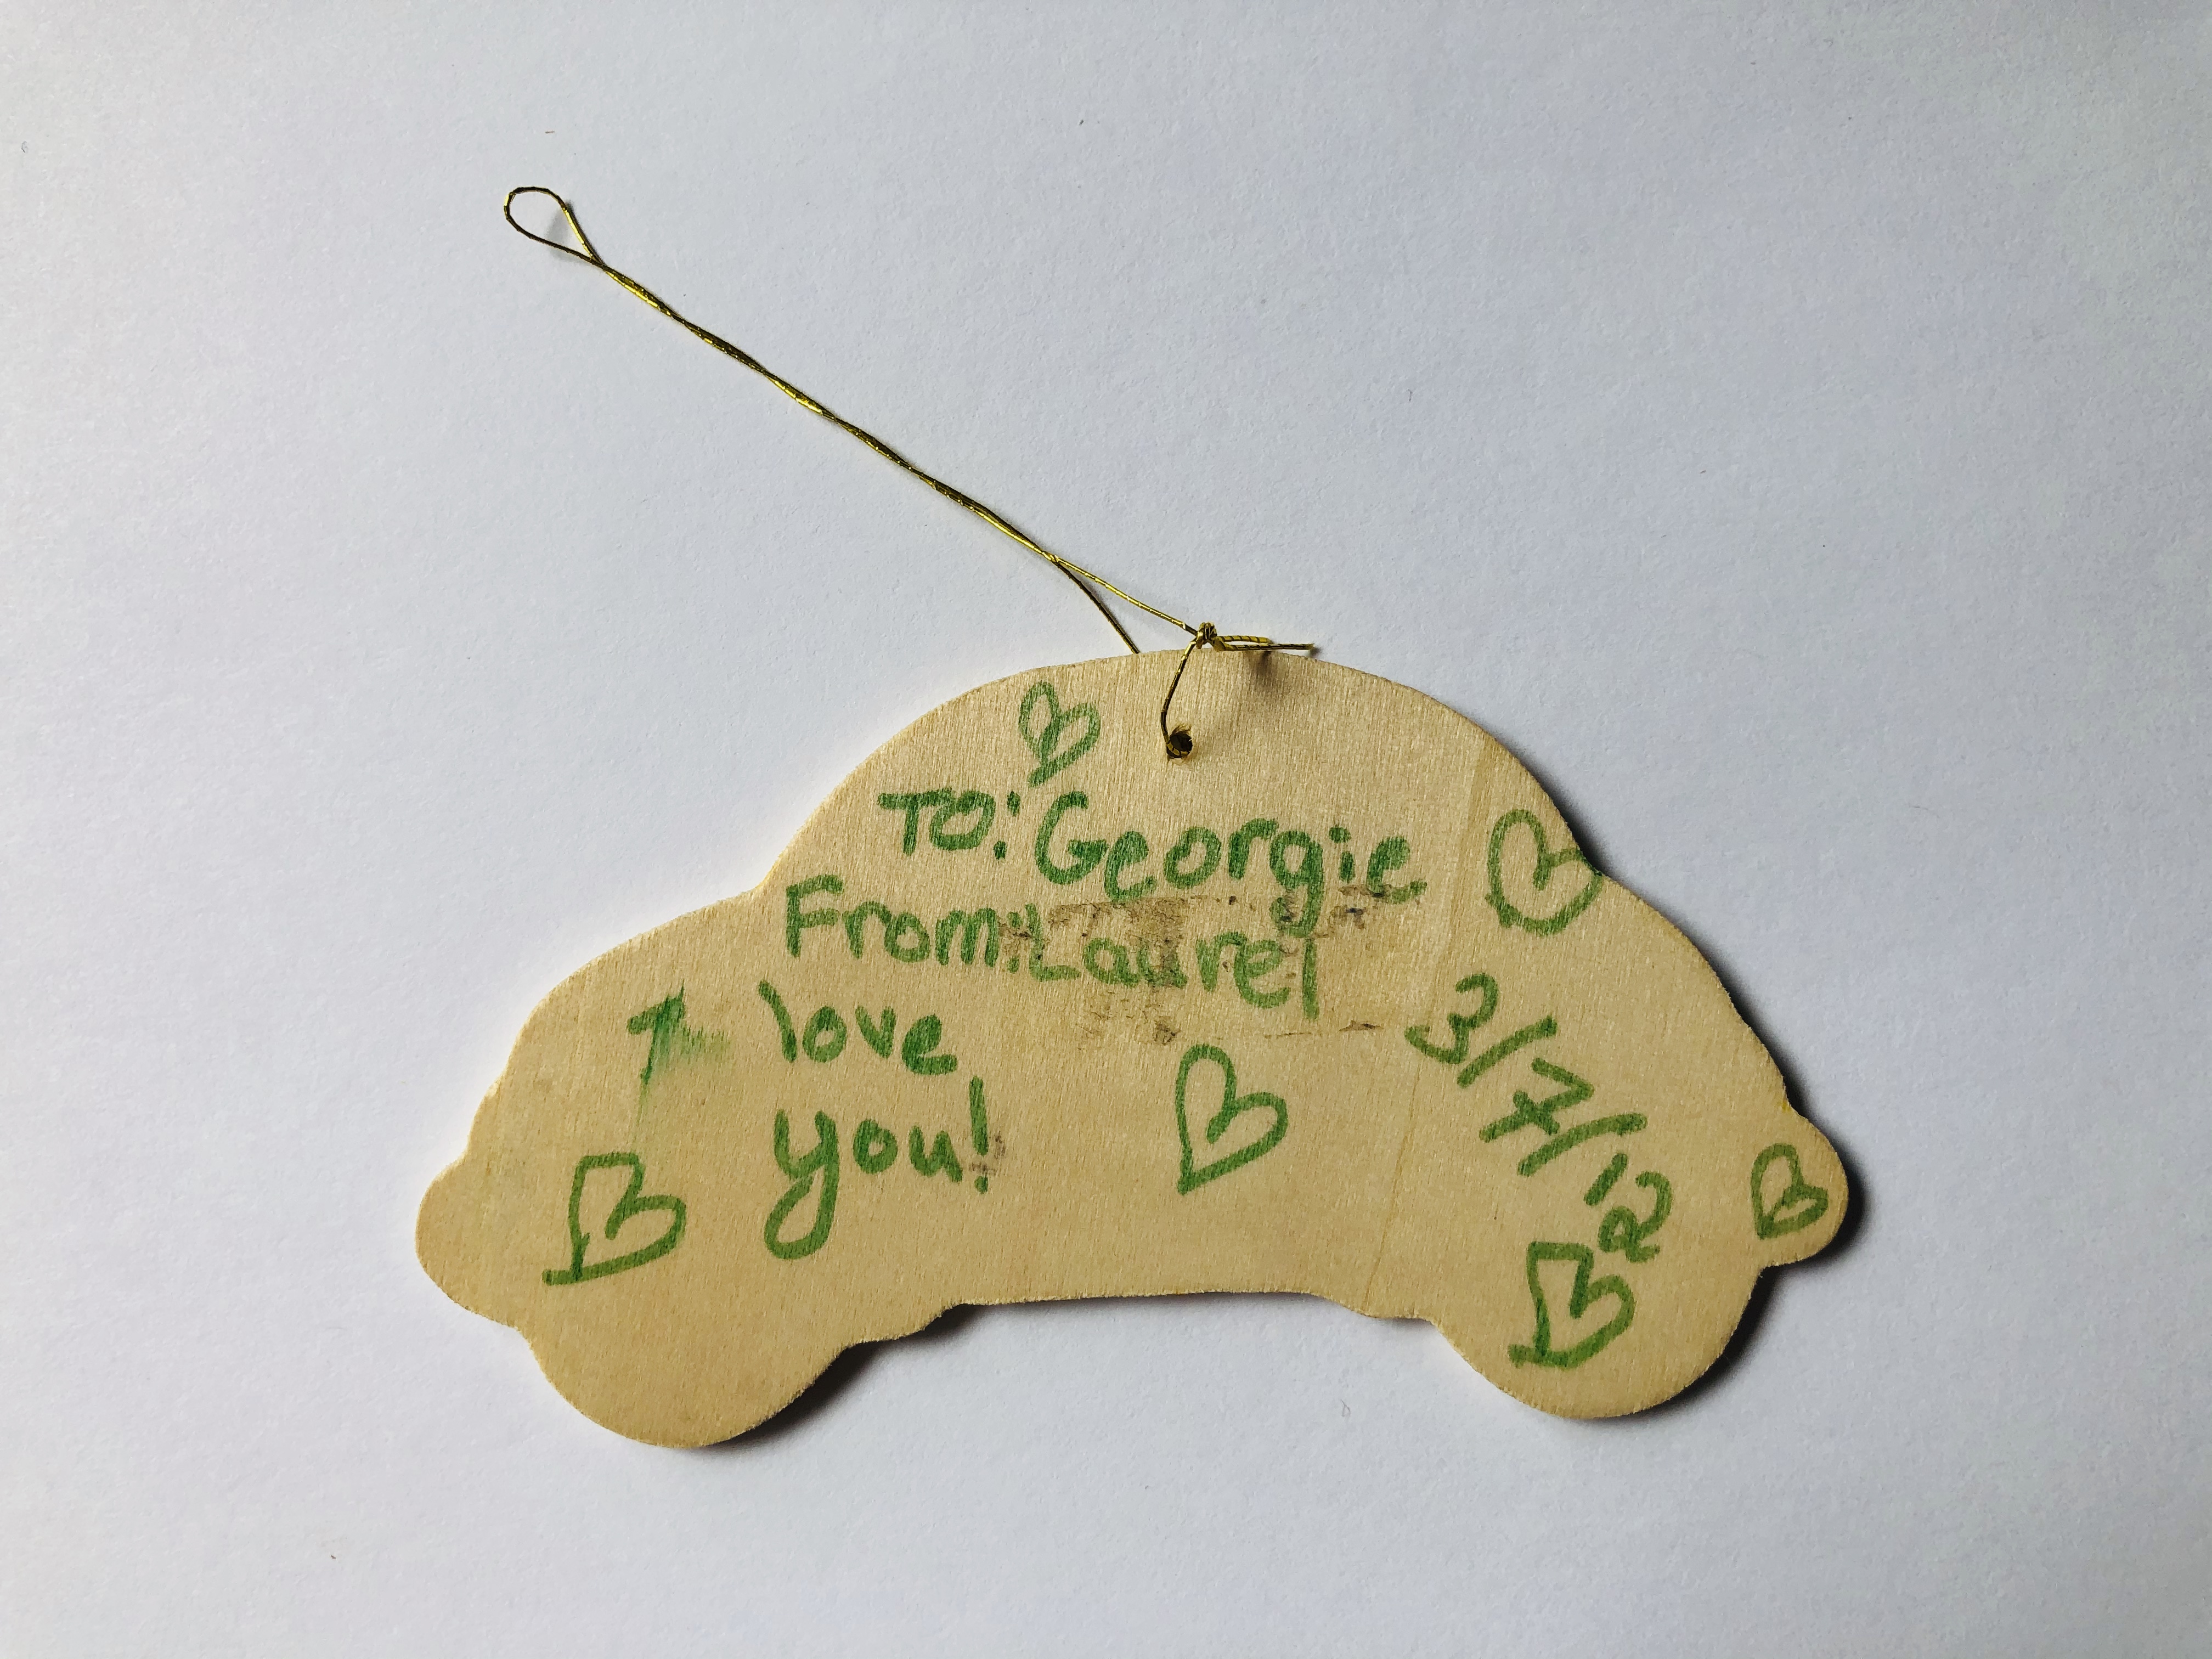 To: Georgie
From: Laurel
I love
you!
3/7/12